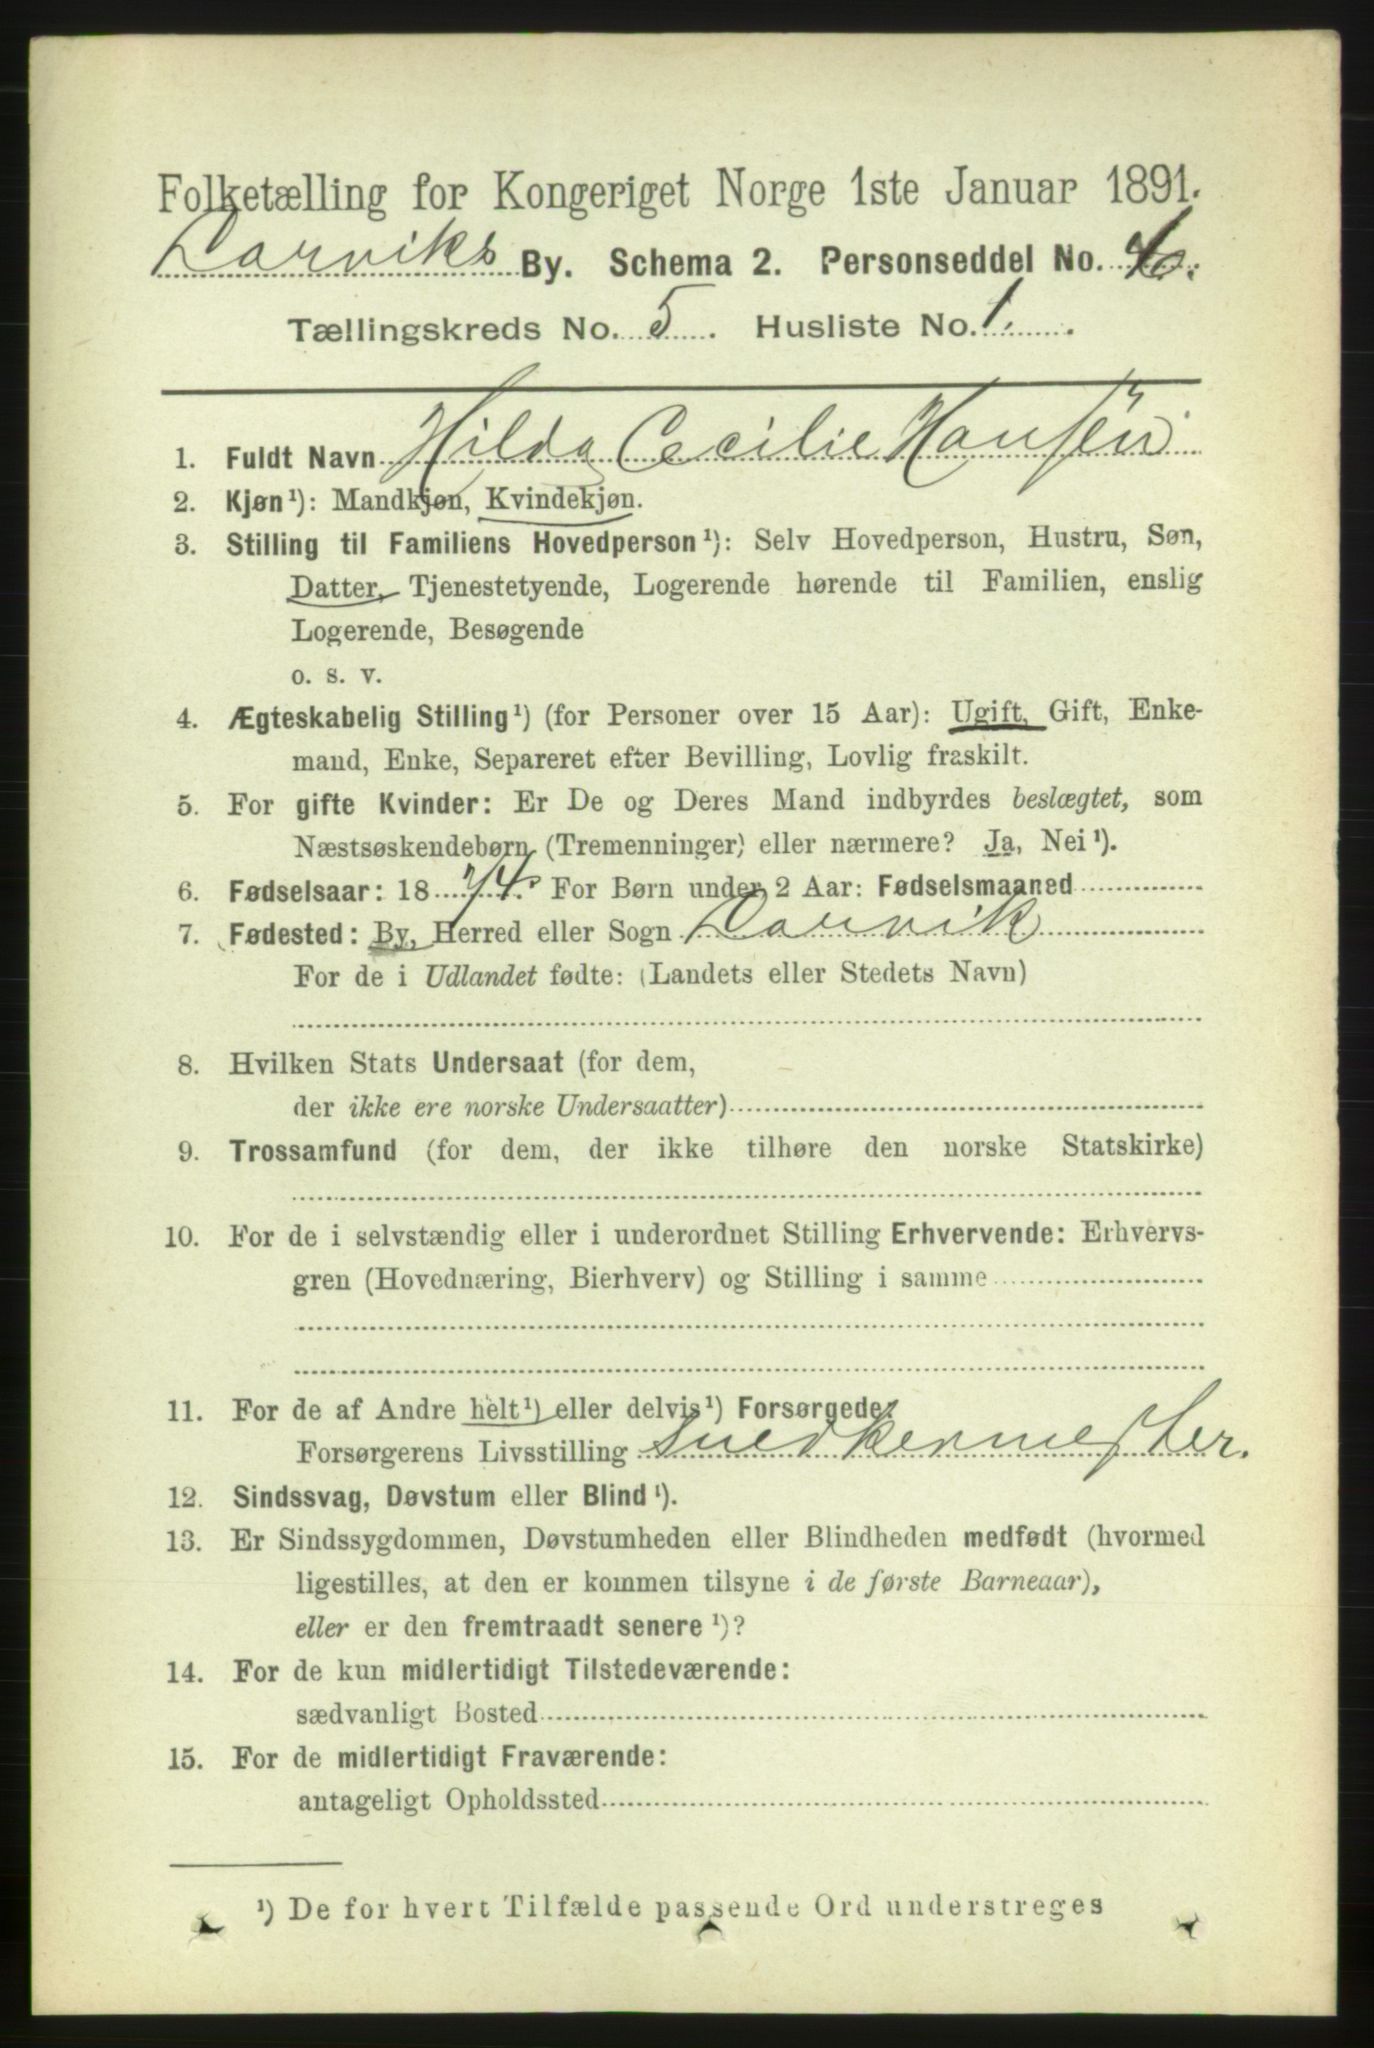 Folketælling for Kongeriget Norge 1ste Januar 1891.
Larviks By. Schema 2. Personseddel No.
Tællingskreds No. 5. Husliste No. 1.
1. Fuldt Navn Hilda Cecilie Hansen
2. Kjøn¹): Mandkjøn, Kvindekjøn.
3. Stilling til Familiens Hovedperson¹): Selv Hovedperson, Hustru, Søn,
Datter, Tjenestetyende, Logerende hørende til Familien, enslig
Logerende, Besøgende
o. s. v.
4. Ægteskabelig Stilling¹) (for Personer over 15 Aar): Ugift, Gift, Enke-
mand, Enke, Separeret efter Bevilling, Lovlig fraskilt.
5. For gifte Kvinder: Er De og Deres Mand indbyrdes beslægtet, som
Næstsøskendebørn (Tremenninger) eller nærmere? Ja, Nei¹).
6. Fødselsaar: 1874. For Børn under 2 Aar: Fødselsmaaned
7. Fødested: By, Herred eller Sogn Larvik
For de i Udlandet fødte: (Landets eller Stedets Navn)
8. Hvilken Stats Undersaat (for dem,
der ikke ere norske Undersaatter)
9. Trossamfund (for dem, der ikke tilhøre den norske Statskirke)
10. For de i selvstændig eller i underordnet Stilling Erhvervende: Erhvervs-
gren (Hovednæring, Bierhverv) og Stilling i samme
11. For de af Andre helt¹) eller delvis¹) Forsørgede:
Forsørgerens Livsstilling Snedkermester.
12. Sindssvag, Døvstum eller Blind¹).
13. Er Sindssygdommen, Døvstumheden eller Blindheden medfødt (hvormed
ligestilles, at den er kommen tilsyne i de første Barneaar),
eller er den fremtraadt senere¹)?
14. For de kun midlertidigt Tilstedeværende:
sædvanligt Bosted
15. For de midlertidigt Fraværende:
antageligt Opholdssted
¹) De for hvert Tilfælde passende Ord understreges